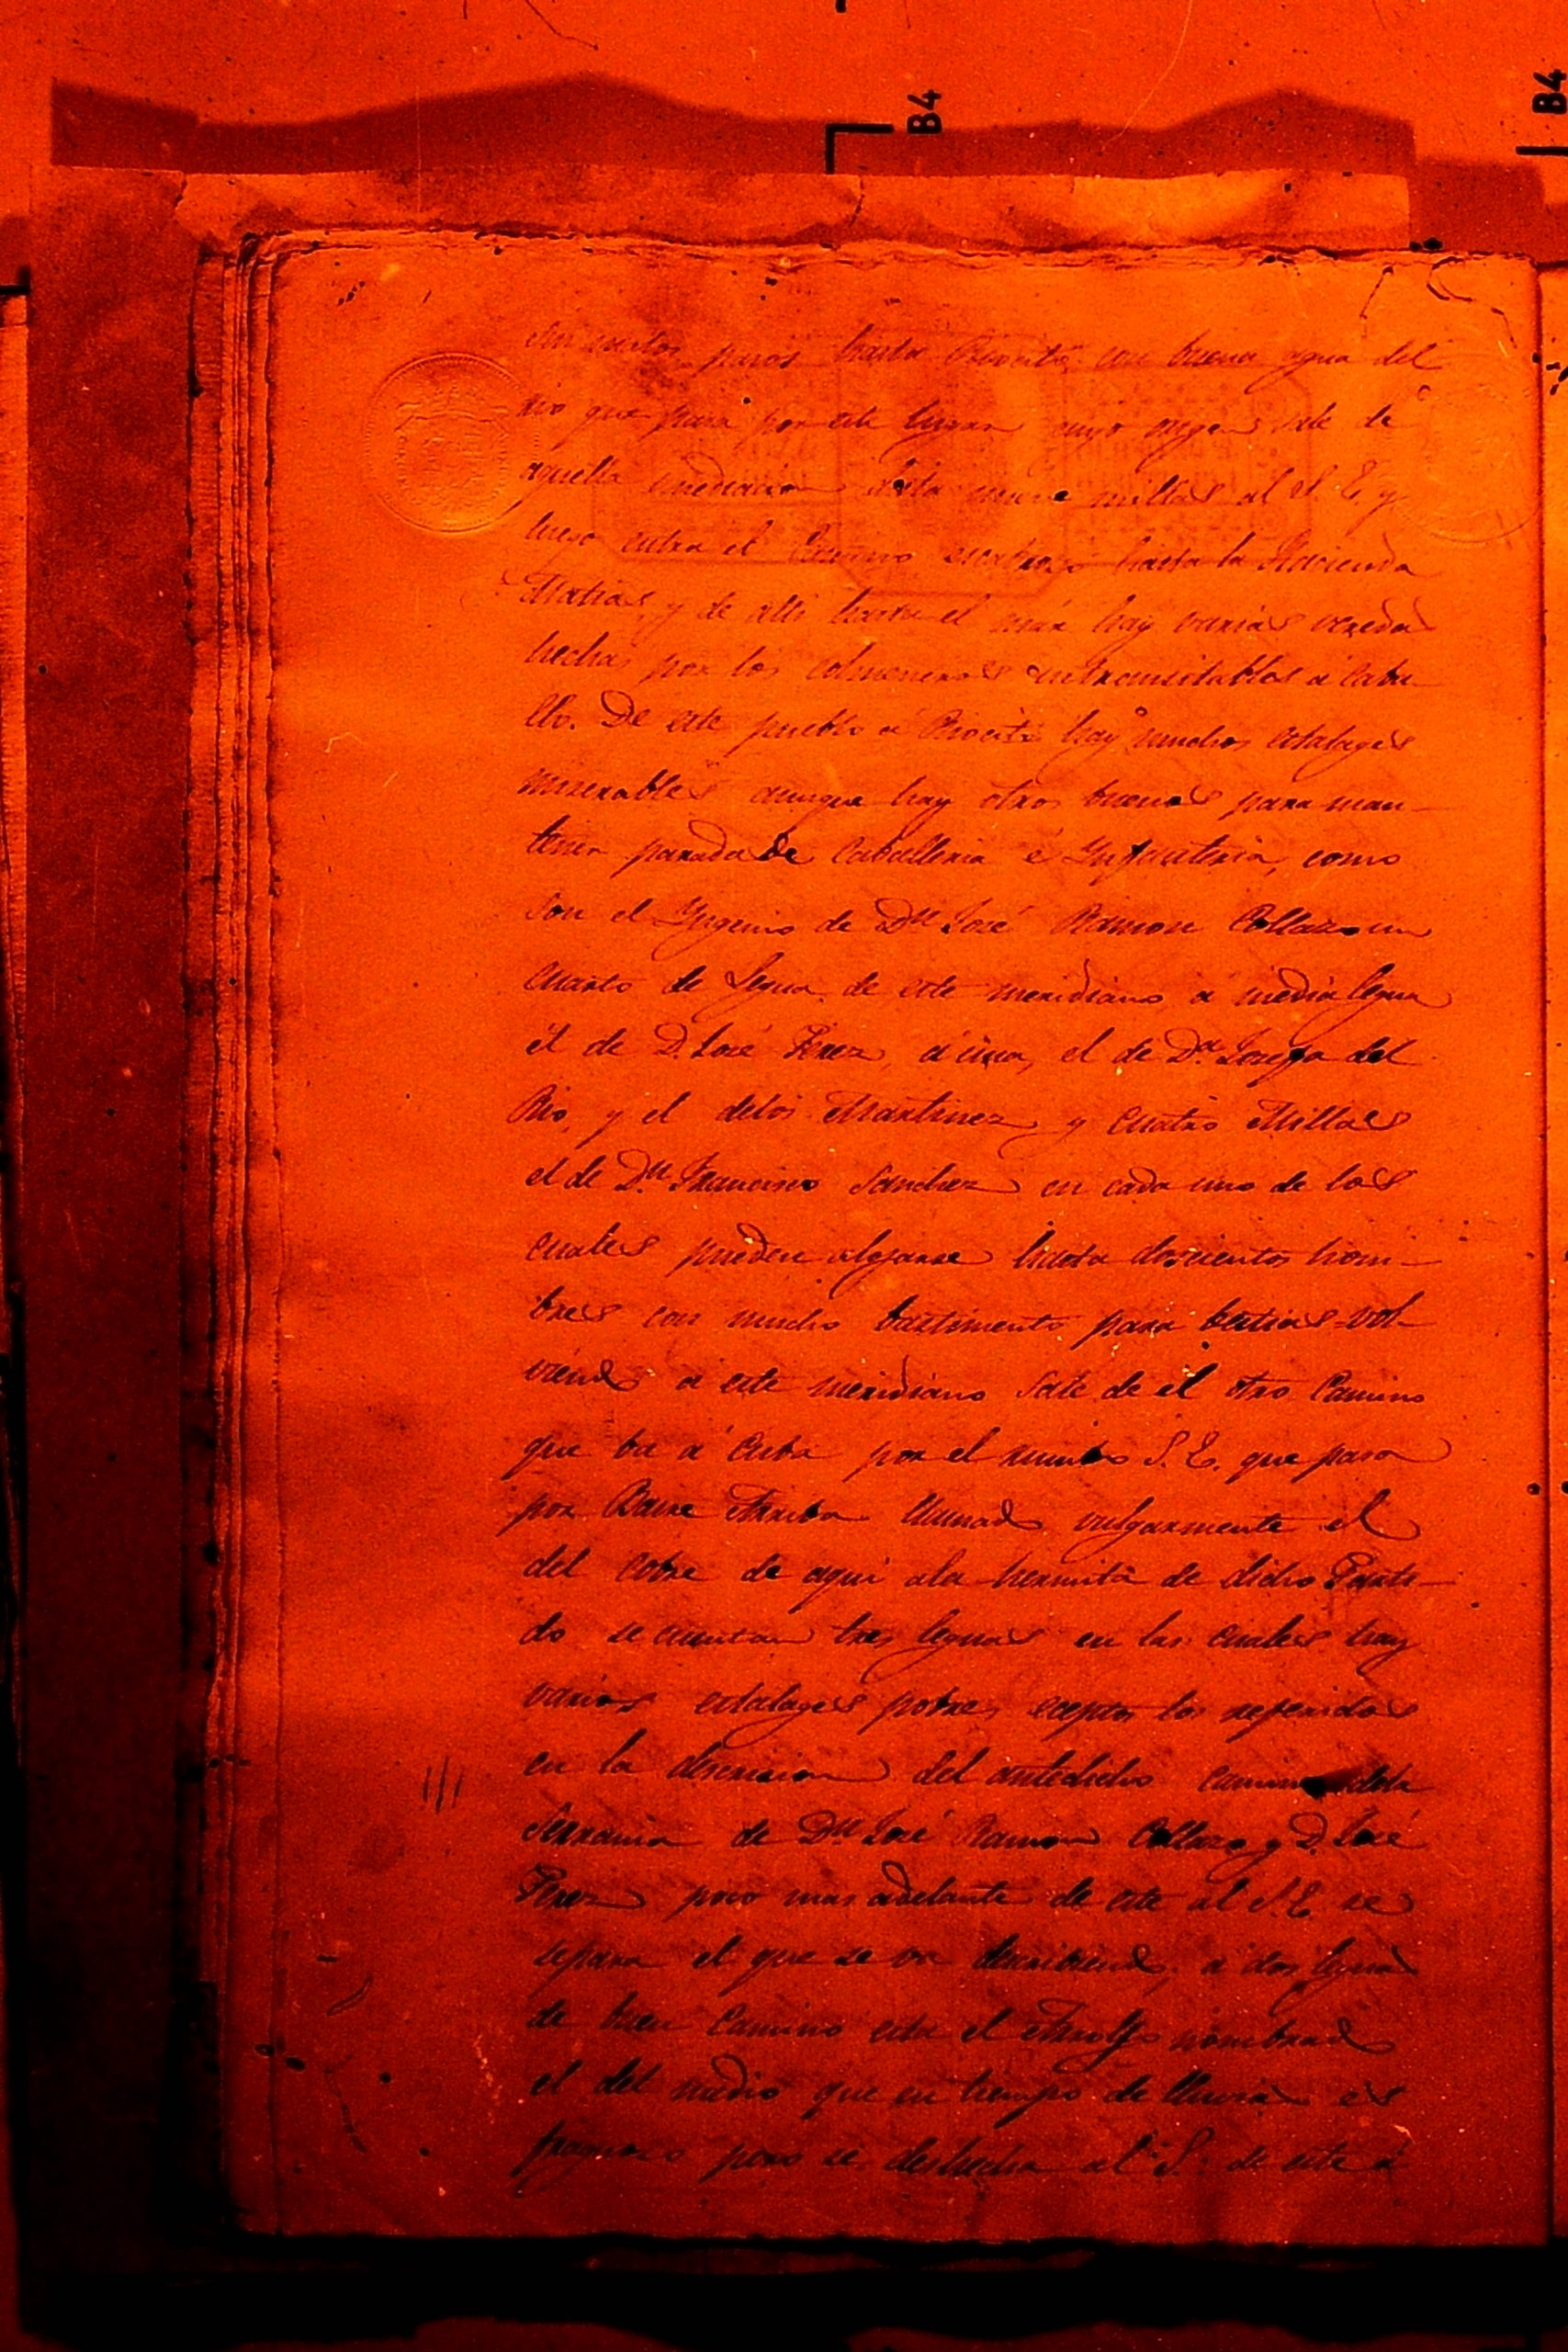 B4
B4
pasos hasta con buena agua del
rio que pasa por este lugar cuyo origen sale de
aquella dista nueve millas al S. E. y
luego entra el Camino escabroso hasta la Hacienda
Matias, y de alli hasta el mar hay varias veredas
hechas por los colmeneros intransitables á Caba-
llo. De este pueblo á hay muchos estalages
miserables aunque hay otros buenos para man-
tener parada de Caballeria é Infanteria, como
son el Yngenio de Dn José Ramon Collazo un
cuarto de legua de este meridiano, á media legua
él de D. José Perez, á una, el de Da. Josefa del
Rio, y el delos Martinez y cuatro Millas
el de Dn Francisco Sanchez en cada uno de los
cuales pueden alojarse hasta doscientos hom-
bres con mucho bastimento para bestias vol-
viendo á este meridiano sale de el otro Camino
que ba á Cuba por el rumbo S. E. que pasa
por Baire Arriba llamado vulgarmente el
del Cobre de aqui ala hermita de dicho Parti-
do se cuentan tres leguas en las cuales hay
varios estalages pobres eceptos los referidos
en la descricion del antedicho camino dela
Serrania de Dn José Ramon Collazo y D. José
Perez poco mas adelante de este al S. E. se
separa el que se va describiendo, á dos leguas
de buen Camino esta el Arroyo nombrado
el del medio que en tiempo de lluvia es
fragoso pero se deshecha al S. de este á